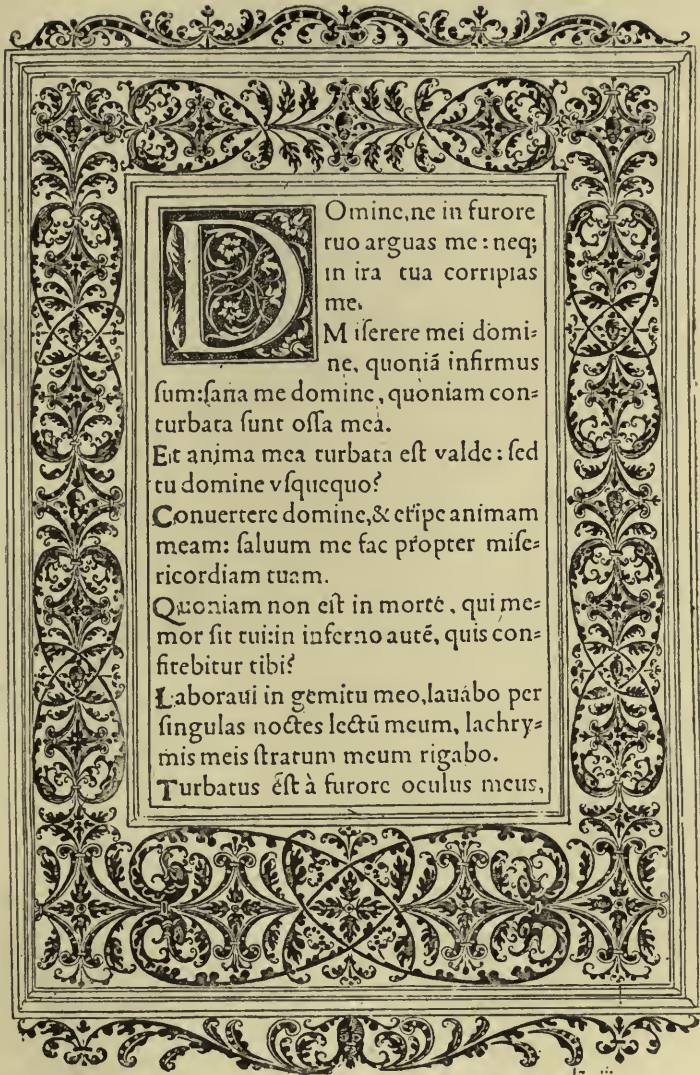 DOmine,ne in furore
tuo arguas me : neq;
in ira tua corripias
me.
Miſerere mei domi=
ne, quoniã infirmus
ſum:ſana me domine, quoniam con=
turbata ſunt oſſa mea.
Et anima mea turbata eſt valde : ſed
tu domine vſquequo?
Conuertere domine,& eripe animam
meam: ſaluum me fac propter miſe=
ricordiam tuam.
Quoniam non eſt in morte, qui me=
mor ſit tui:in inferno autē, quis con=
fitebitur tibi?
Laboraui in gemitu meo,lauabo per
ſingulas noctes lectū meum, lachry=
mis meis ſtratum meum rigabo.
Turbatus eſt à furore oculus meus,